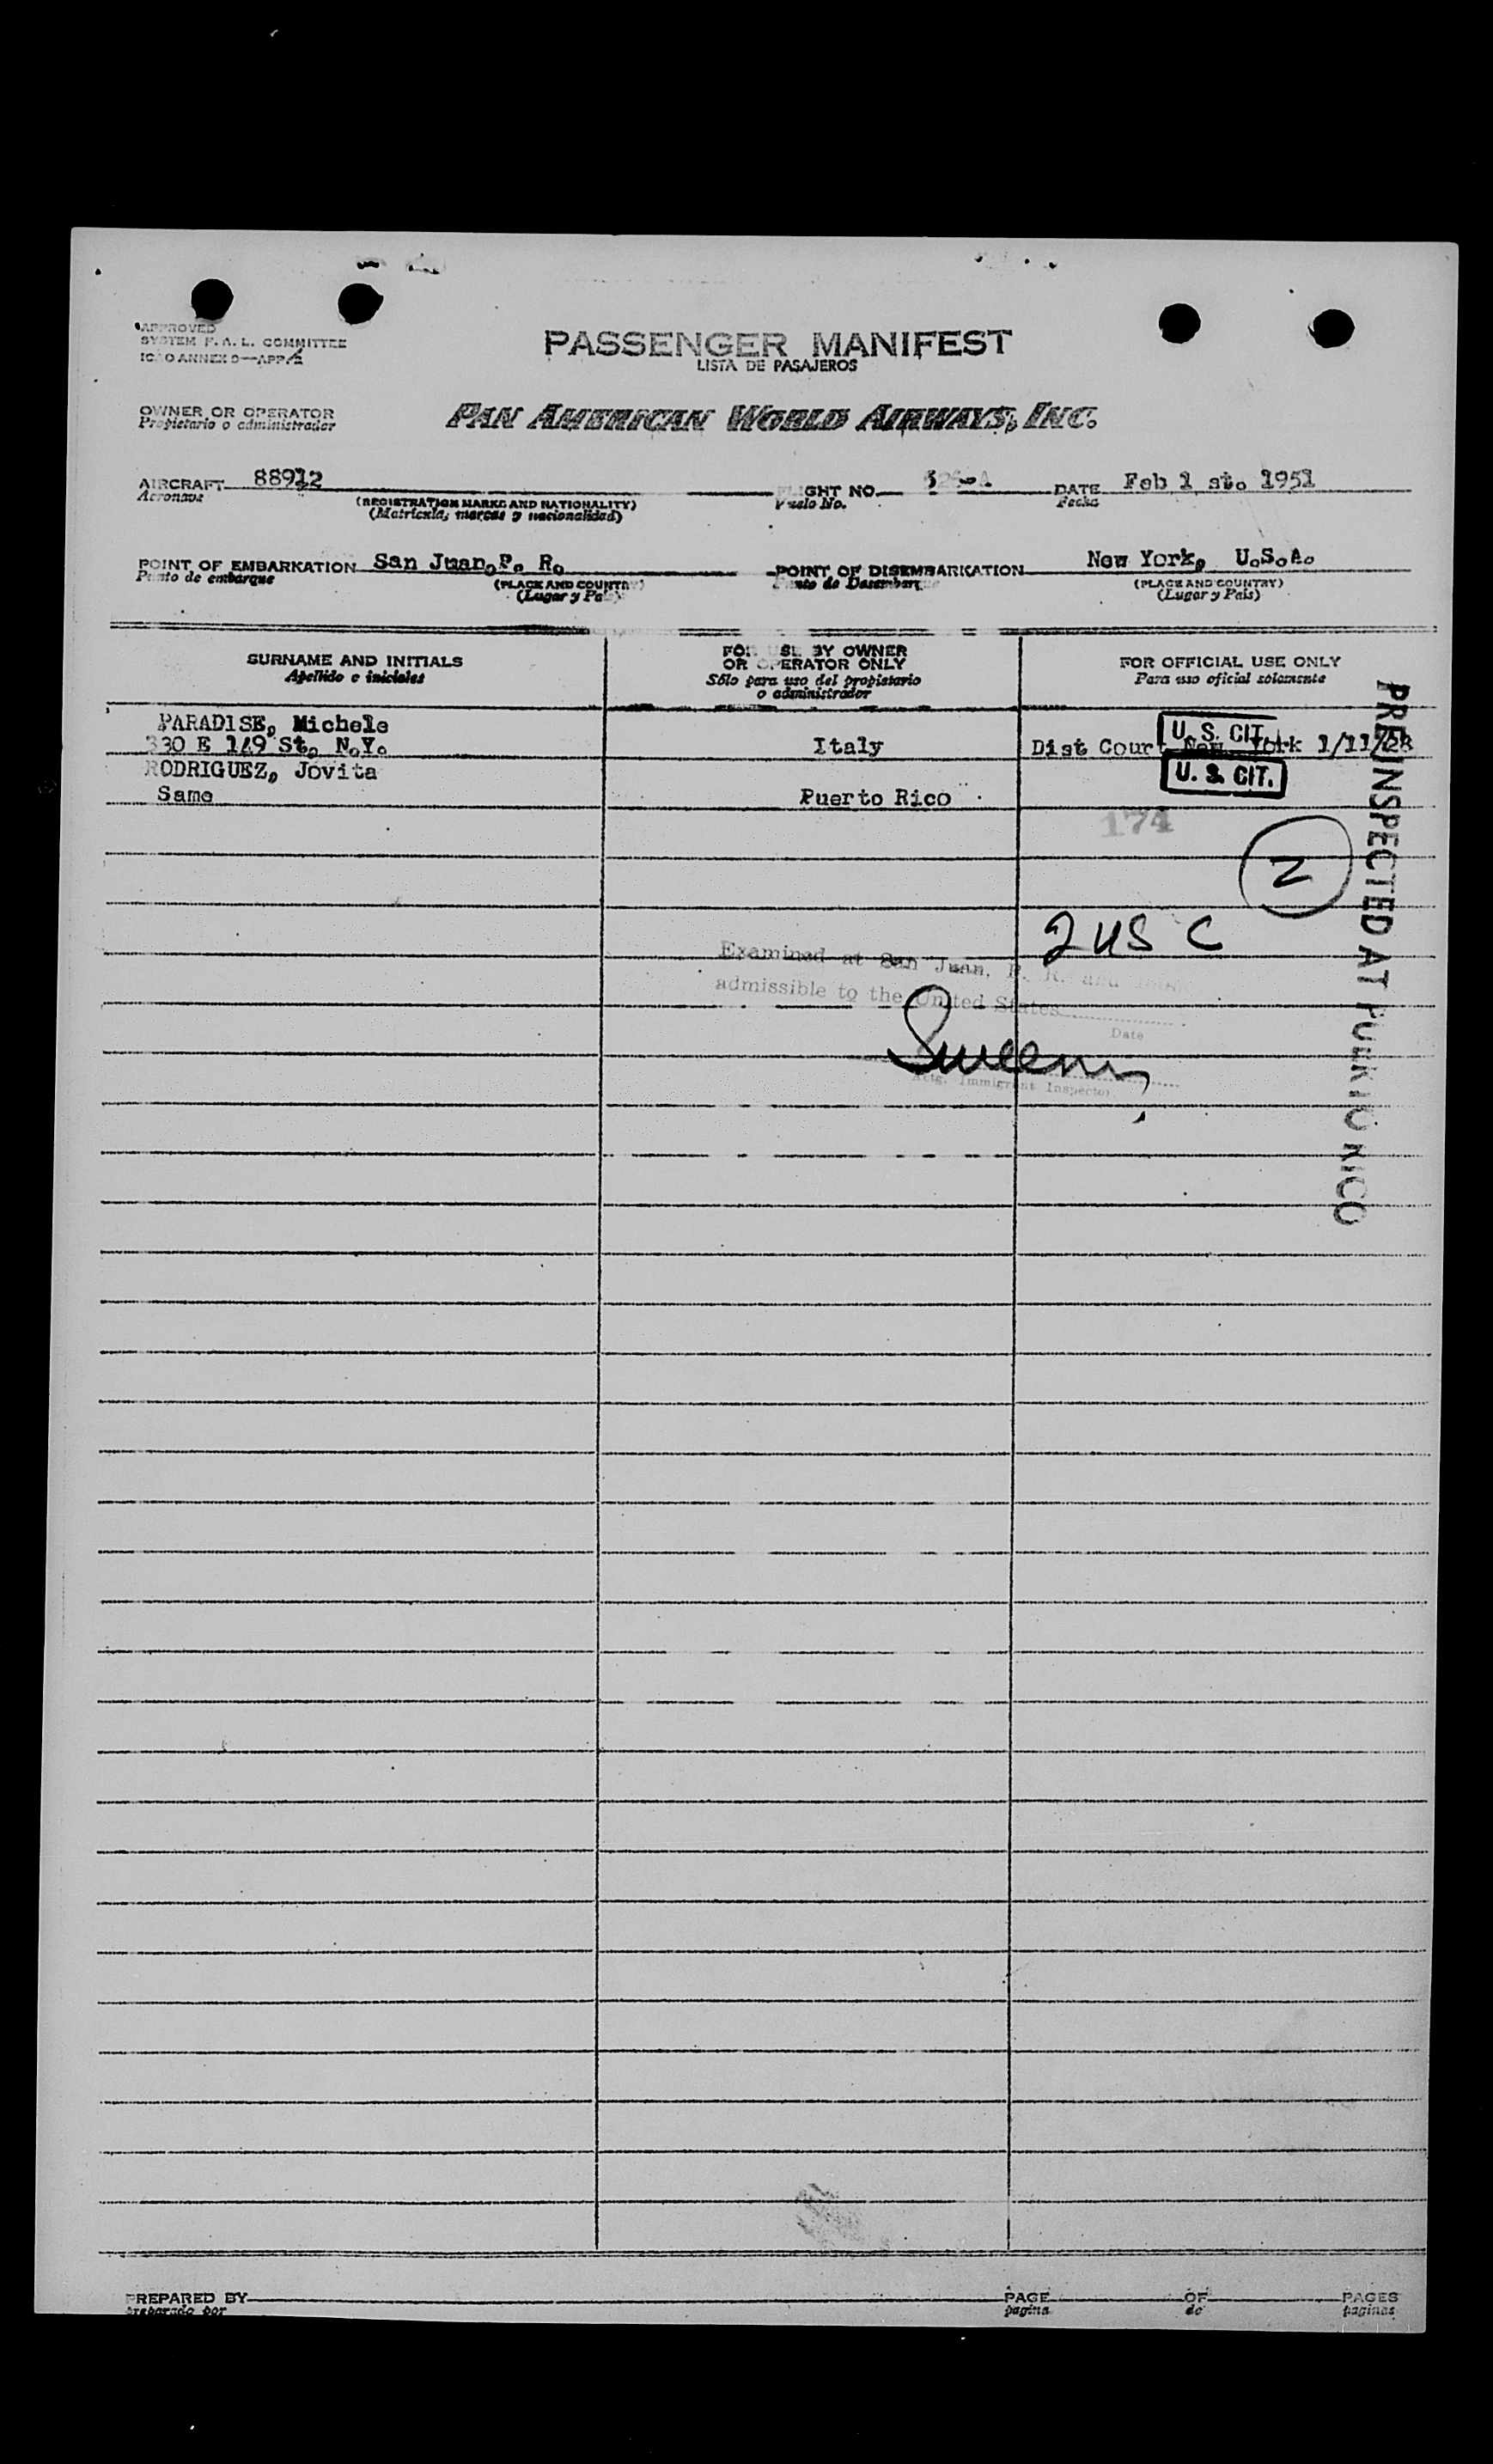 APPROVED
SYSTEM F. A. L. COMMITTEE
ICAO ANNEX 9—APP
PASSENGER MANIFEST
LISTA DE PASAJEROS
OWNER OR OPERATOR
Propietario o administrador
PAN AMERICAN WORLD AIRWAYS, INC.
AIRCRAFT 88912
Aeronave
(REGISTRATION MARKS AND NATIONALITY)
(Matrícula, marcas y nacionalidad)
FLIGHT NO.
Vuelo No.
DATE Feb 1 st. 1951
Fecha
POINT OF EMBARKATION San Juan, P. R.
Punto de embarque
(PLACE AND COUNTRY)
(Lugar y País)
POINT OF DISEMBARKATION New York, U.S.A.
Punto de Desembarque
(PLACE AND COUNTRY)
(Lugar y País)
SURNAME AND INITIALS
Apellido e iniciales
FOR USE BY OWNER
OR OPERATOR ONLY
Sólo para uso del propietario
o administrador
FOR OFFICIAL USE ONLY
Para uso oficial solamente
PARADISE, Michele
330 E 149 St, N.Y. Italy Dist Court New York 1/11/28
U. S. CIT.
RODRIGUEZ, Jovita
U. S. CIT.
Same Puerto Rico
174
N
2 US C
Examined at San Juan, P. R. and
admissible to the United States
Date
Sweeny
Actg. Immigrant Inspector
PREINSPECTED AT PUERTO RICO
PREPARED BY
preparado por
PAGE OF PAGES
pagina de paginas